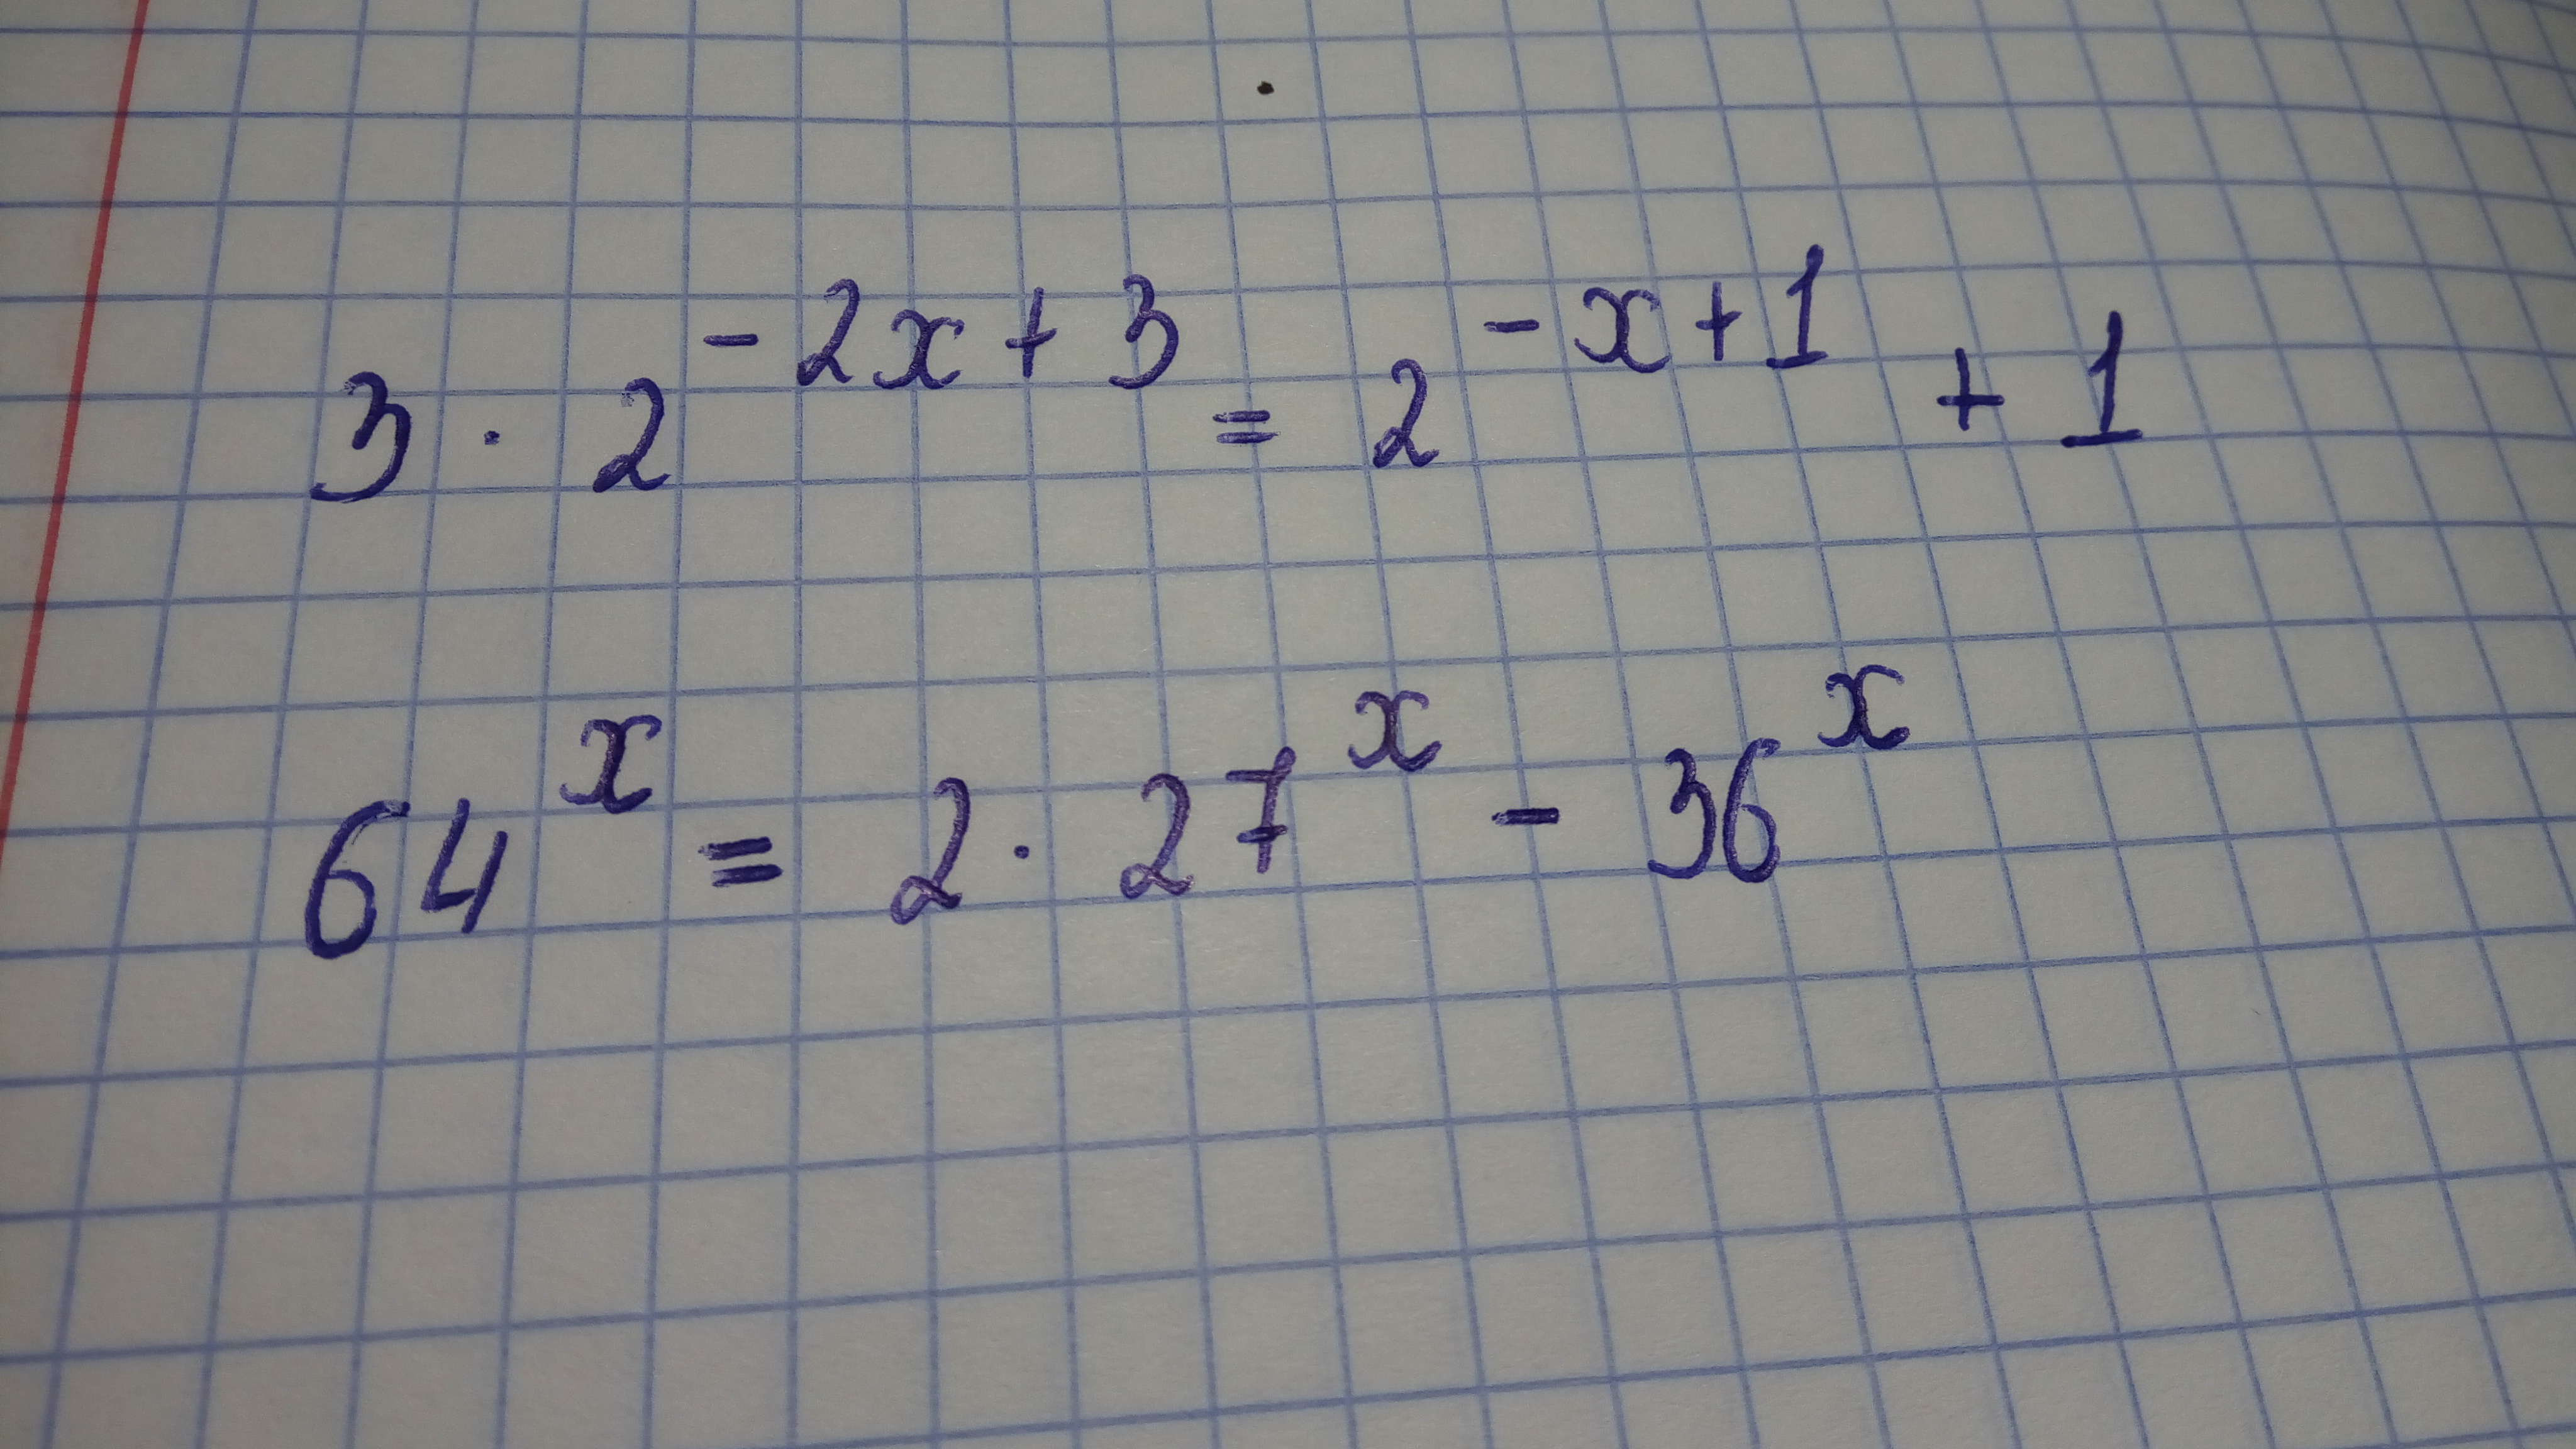 3 · 2^{-2x+3} = 2^{-x+1} + 1
64^x = 2 · 27^x - 36^x